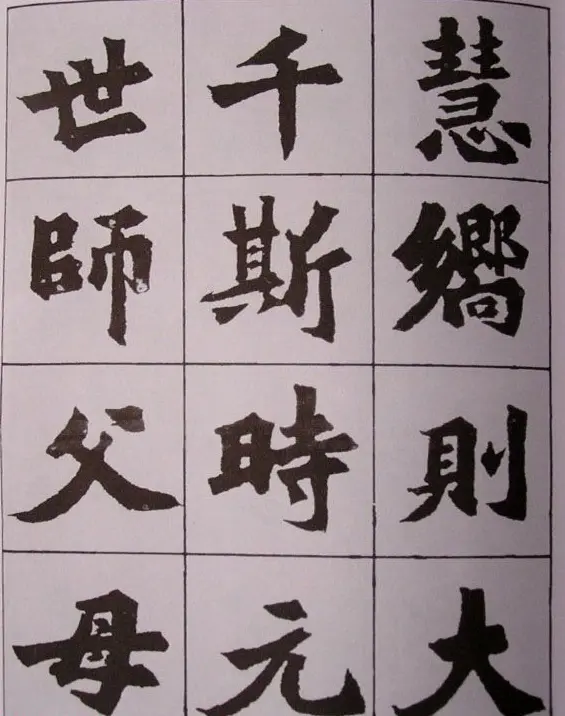 慧嚮則大
千斯時元
世師父母